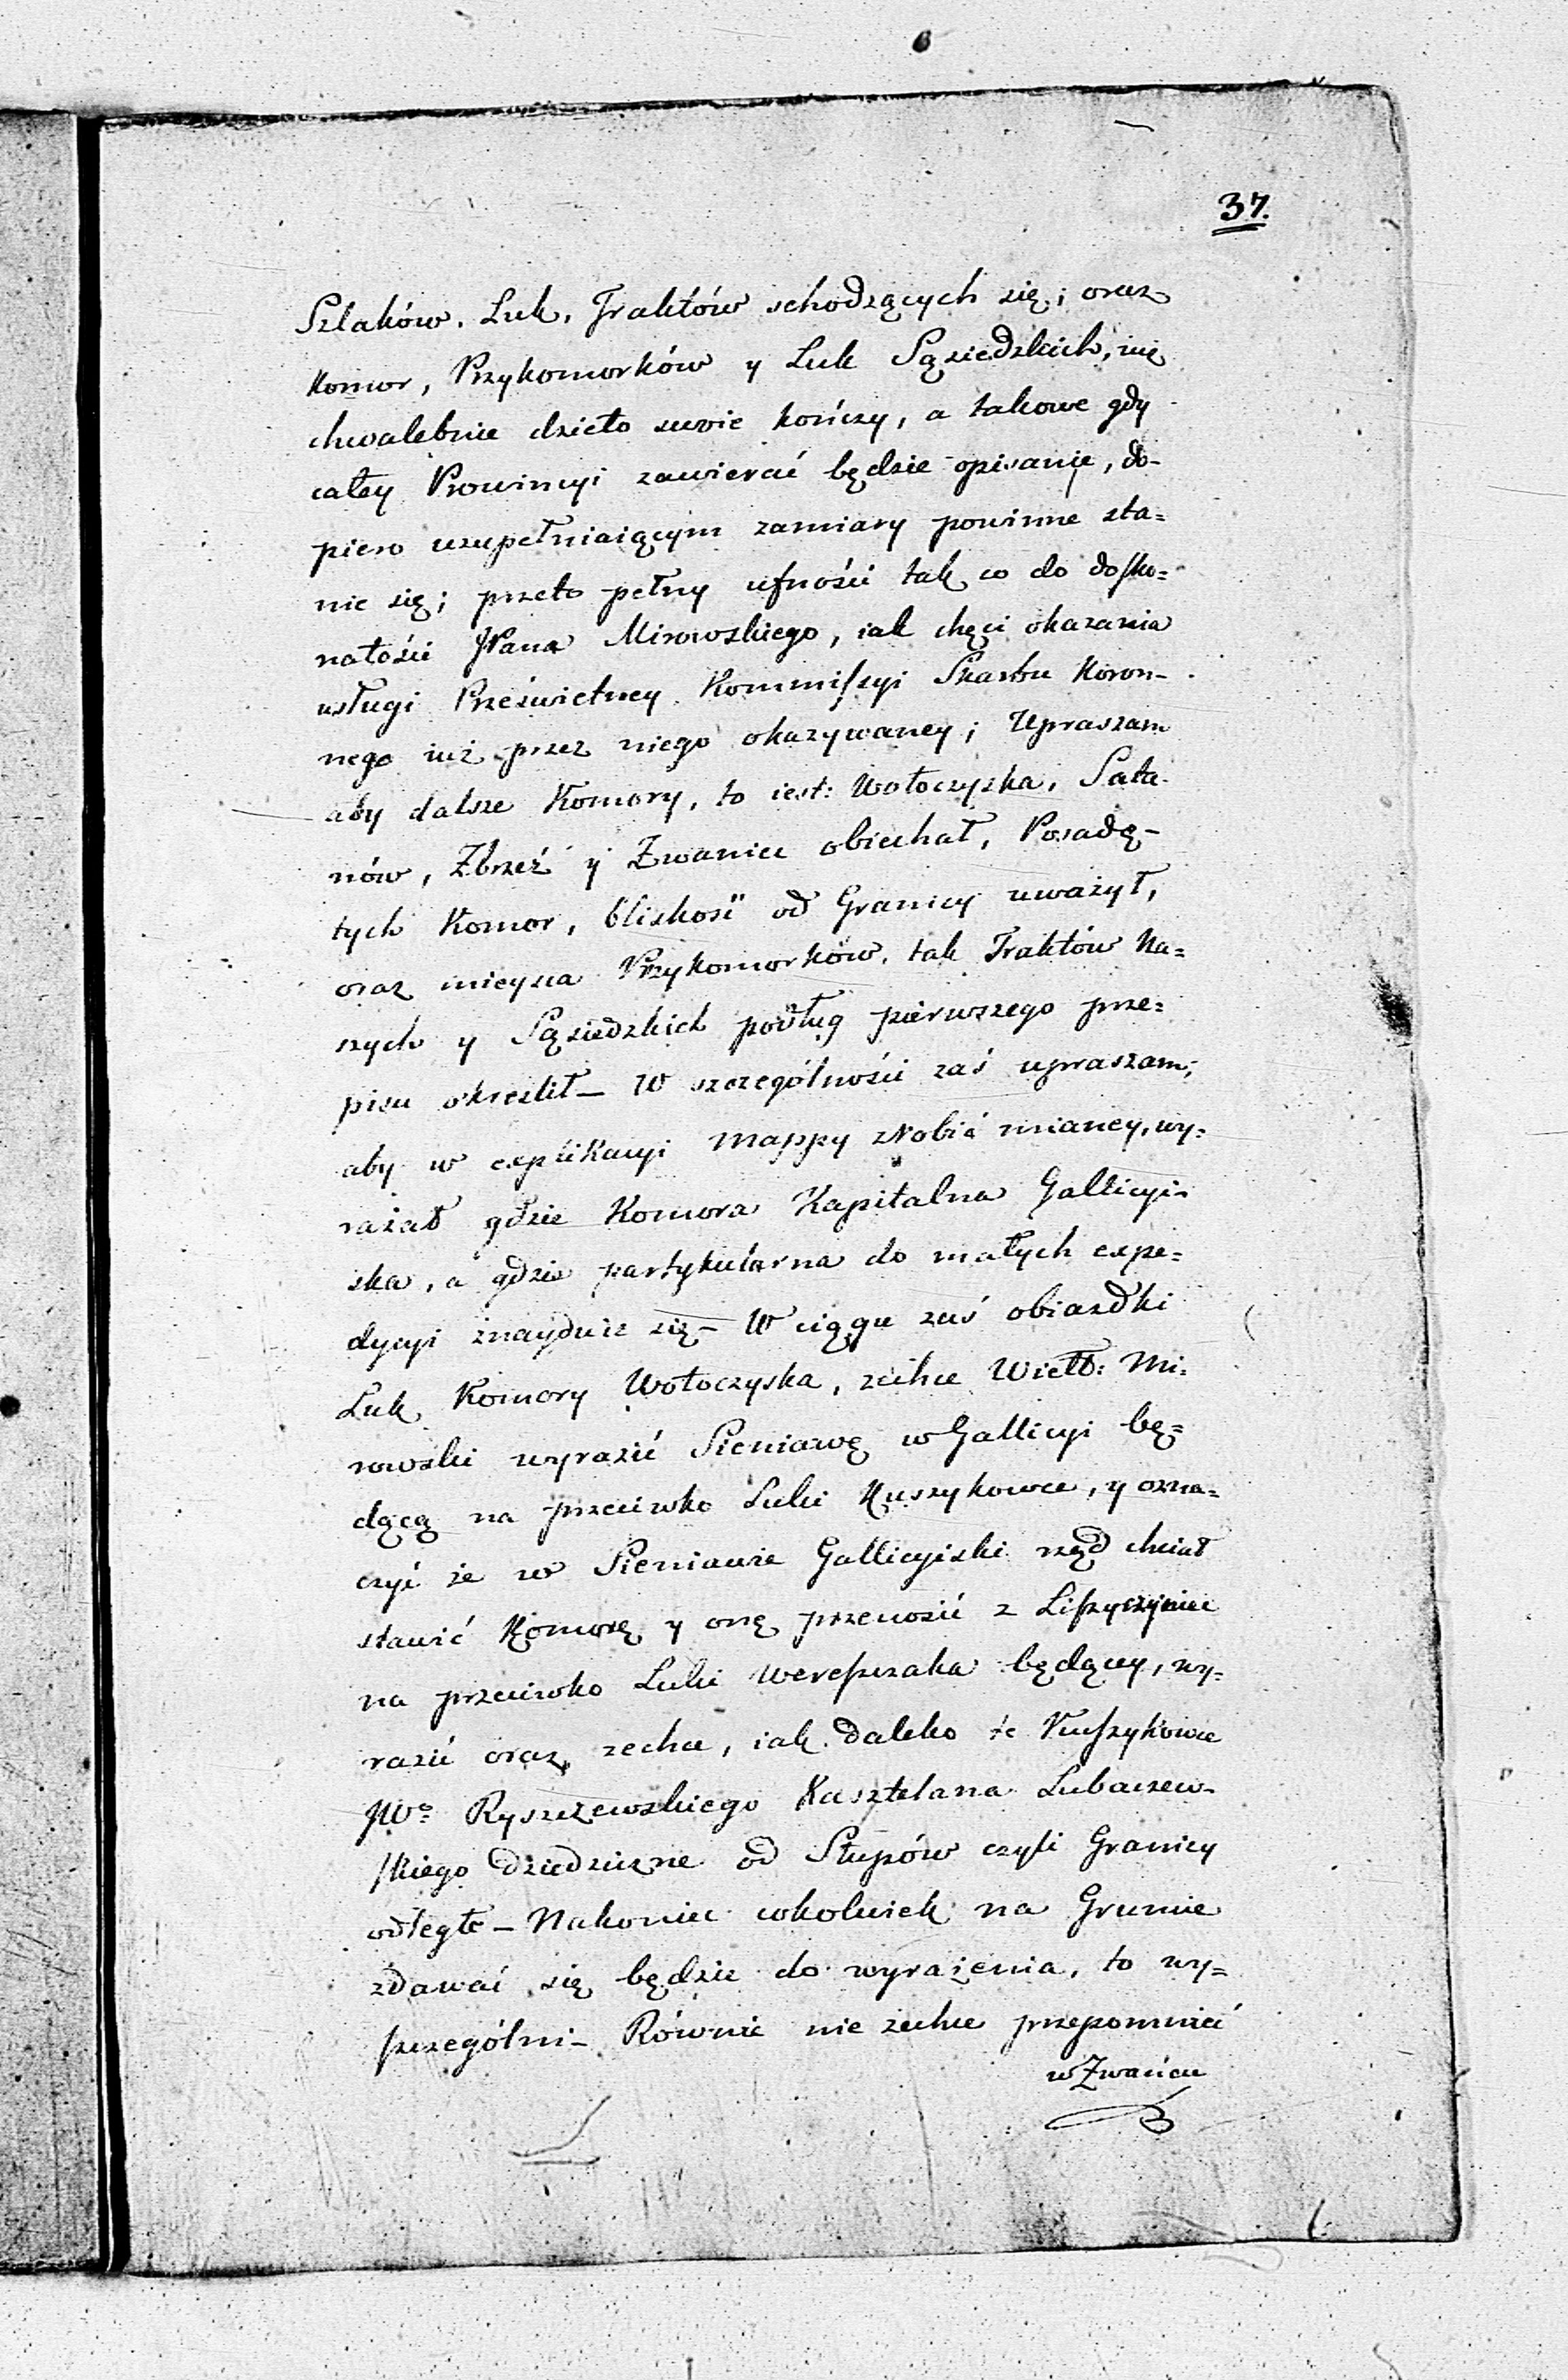 37.
Szlaków. Luk, Traktów schodzących się; oraz
Komor, Przykomorków y Luk Sąsiedzkich, nię
chwalebnie dzieło swoie kończy, a takowe gdy
całey Prowincyi zawierać będzie opisanie, do-
piero uzupełniaiącym zamiary powinne sta=
nie się; przeto pełny ufności tak co do dosko=
nałości JPana Mirowskiego, iak chęci okazania
usługi Prześwietney Kommissyi Skarbu Koron-
nego iuż przez niego okazywaney; Upraszam
aby dalsze Komory, to iest: Wołoczyska, Sata-
nów, Zbrzeź y Żwaniec obiechał, Posadę-
tych Komor, bliskość od Granicy uważył,
oraz mieysca Przykomorków, tak Traktów Na=
szych y Sąsiedzkich podług pierwszego prze=
pisu okreslił – W szczególności zaś upraszam;
aby w explikacyi Mappy zrobić mianey, wy=
rażał gdzie Komora Kapitalna Gallicyi-
ska, a gdzie partykularna do małych expe=
dycyi znayduie się – W ciągu zaś obiazdki
Luk Komory Wołoczyska, zechce Wielb: Mi=
rowski wyrazić Sieniawę w Gallicyi bę=
dącą na przeciwko Luki Kuszykowce, y ozna=
czyć że w Sieniawie Gallicyiski rząd chciał
stawić Komorę y onę przenosić z Liszyczyniec
na przeciwko Luki Werepczaka będącey, wy=
razić oraz zechce, iak daleko te Kuszykowce
JWo Ryszczewskiego Kasztelana Lubaczew-
skiego dziedziczne od Słupów czyli Granicy
odległe – Nakoniec cokolwiek na Gruncie
zdawać się będzie do wyrażenia, to wy=
szczególni – Równie nie zechce przepomnieć
w Żwańcu